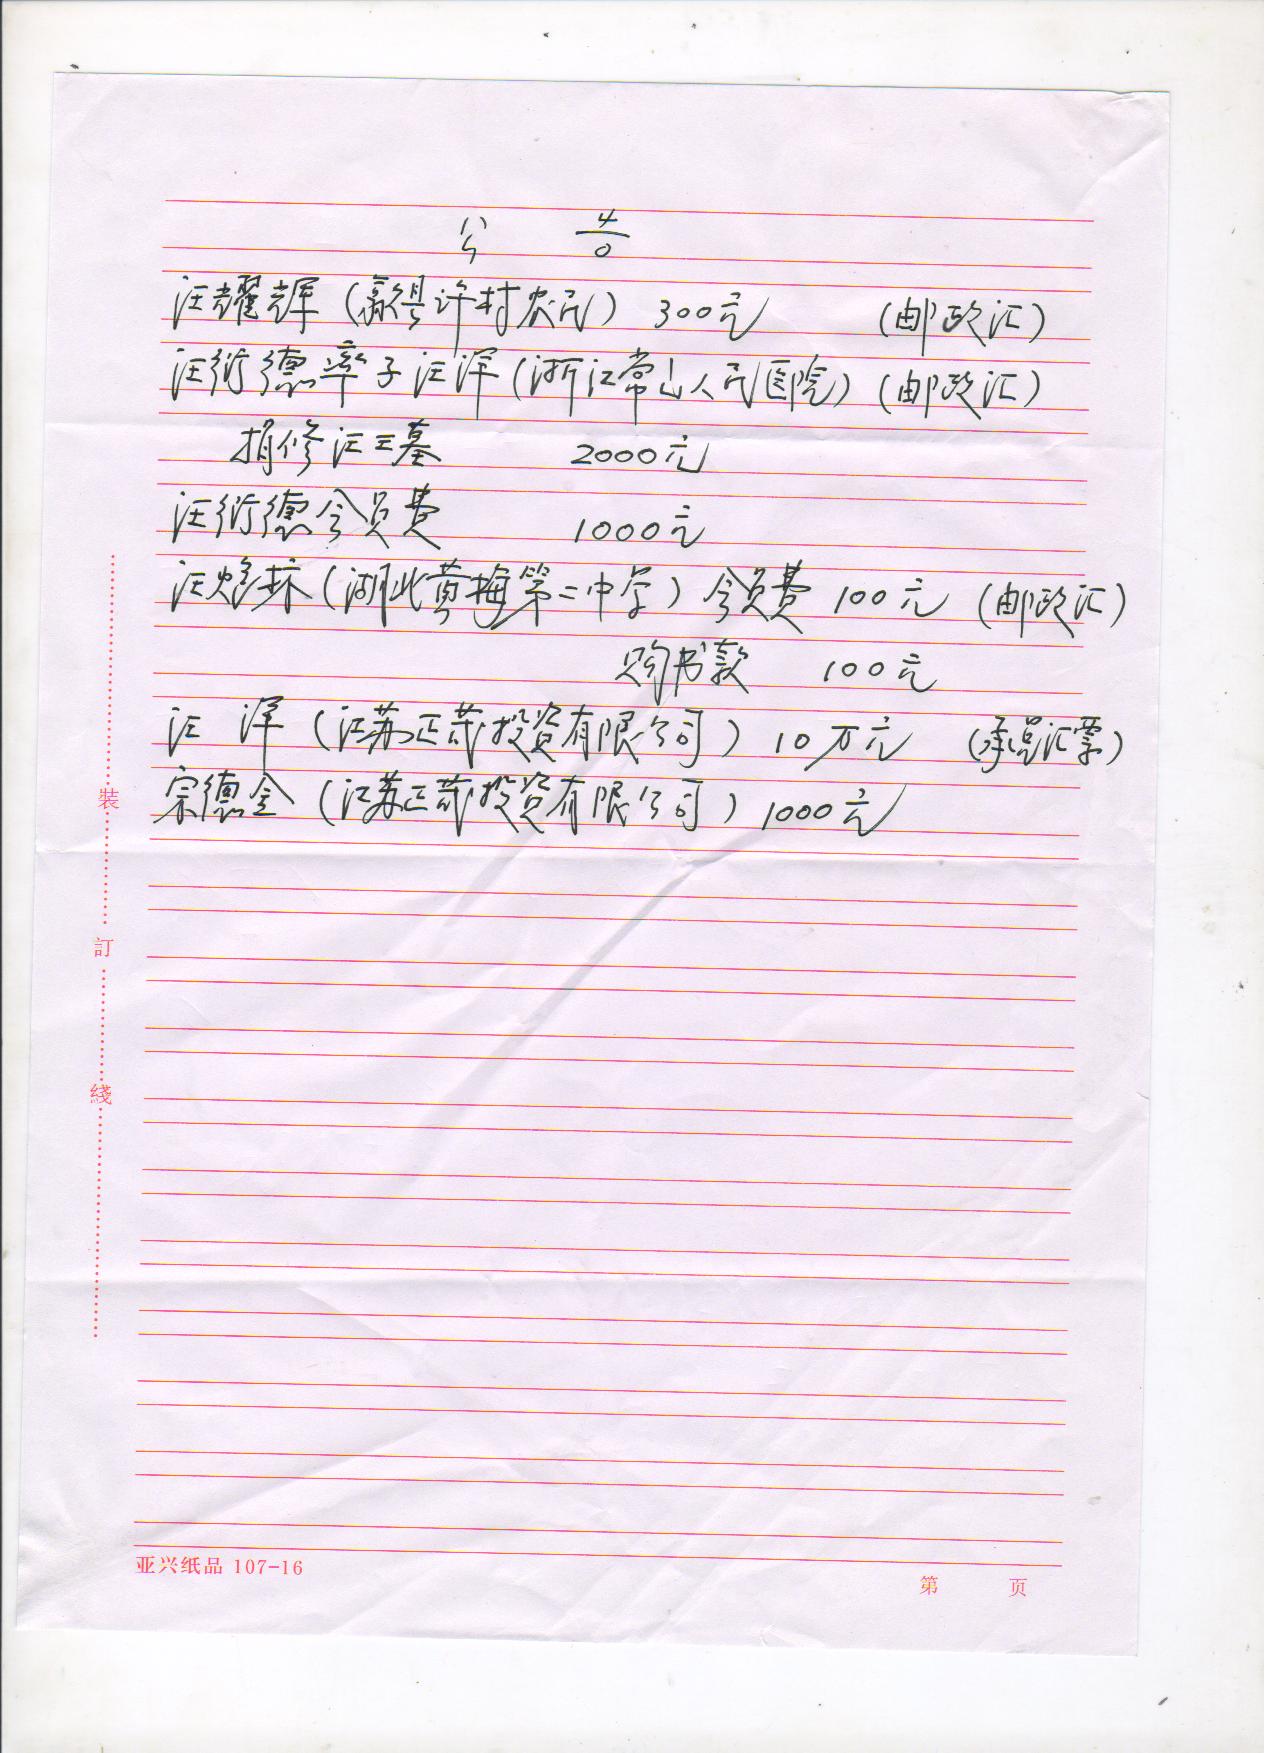 公 告
汪耀辉（歙县许村农民） 300元 （邮政汇）
汪衍德率子汪洋（浙江常山人民医院）（邮政汇）
捐修汪王墓 2000元
汪衍德会员费 1000元
汪焰林（湖北黄梅第二中学）会员费 100元 （邮政汇）
购书款 100元
汪 洋（江苏正茂投资有限公司） 10万元 （承兑汇票）
宗德金（江苏正茂投资有限公司） 1000元
裝
訂
綫
亚兴纸品 107-16
第 页